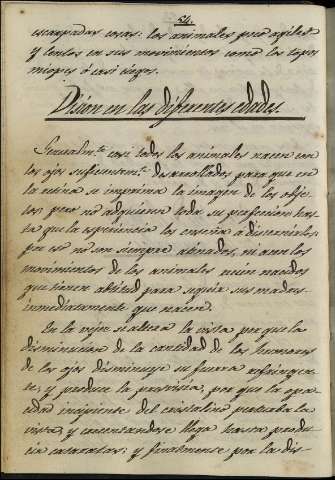 54.
escarpadas rocas: los animales poco agiles
y lentos en sus movimientos como los topos
miopes ó casi ciegos.
Vision en las diferentes edades.
Generalm.te casi todos los animales nacen con
los ojos suficientem.te desarrollados para que en
la retina se imprima la imagen de los obje-
tos, pero no adquieren toda su perfeccion has-
ta que la esperiencia los enseña a discernirlos,
por eso no son siempre atinados, ni aun los
movimientos de los animales recien nacidos
que tienen abtitud para seguir sus madres
inmediatamente que nacen.
En la vejez se altera la vista por que la
disminucion de la cantidad de los humores
de los ojos disminuye su fuerza refringen-
te, y produce la presvicia, por que la opa-
cidad incipiente del cristalino perturba la
vista, y aumentandose llega hasta produ-
cir cataratas; y finalmente por la dis-